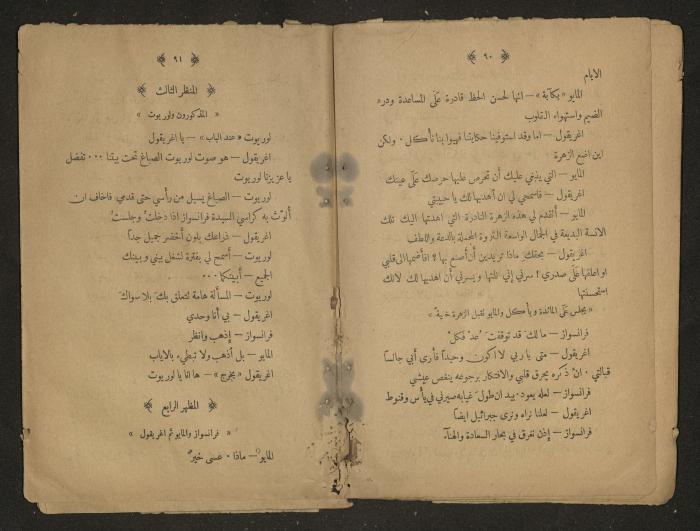 ﴿ ٩٠ ﴾
الايام
المايو «بكآبة» — انها لحسن الحظ قادرة على المساعدة ودرء
الضيم واستهواء القلوب
اغريقول — اما وقد استوفينا حكايتنا فهيوا بنا نأكل · ولكن
اين اضع الزهرة
المايو — التي ينبغي عليك أن تحرص عليها حرصك على عينك
اغريقول — فاسمحي لي ان أهديها لك يا حبيبتي
المايو — أتقدم لي هذه الزهرة النادرة التي اهدتها اليك تلك
الآنسة البديعة في الجمال الواسعة الثروة المحملة بالدعة واللطف
اغريقول — بحقك ماذا تريدين أن أصنع بها؟ أفأضمها الى قلبي
او اعلقها على صدري؟ سرني إني نلتها ويسرني أن اهديها لك لانك
استحسنتها
«يجلس على المائدة ويأكل والمايو تقبل الزهرة خفية»
فرانسواز — مالك قد توقفت عد فكل
اغريقول — متى يا ربي لا اكون وحيداً فأرى أبي جالساً
قبالتي · ان ذكره يحرق قلبي والافتكار برجوعه ينغص عيشي
فرانسواز — لعله يعود · بيد ان طول غيابه صيرني في يأس وقنوط
اغريقول — لعلنا نراه ونرى جبرائيل ايضاً
فرانسواز — إذن نغرق في بحار السعادة والهناء
﴿ ٩١ ﴾
﴿ المنظر الثالث ﴾
« المذكورون ولوريوت »
لوريوت «عند الباب» — يا اغريقول
اغريقول — هو صوت لوريوت الصباغ تحت بيتنا ··· تفضل
يا عزيزنا لوريوت
لوريوت — الصباغ يسيل من رأسي حتى قدمي فاخاف ان
ألوّث به كراسي السيدة فرانسواز اذا دخلت وجلست
اغريقول — ذراعك بلون أخضر جميل جداً
لوريوت — أتسمح لي بفترة لشغل بيني وبينك
الجميع — أبينكما ···
لوريوت — المسألة هامة تتعلق بك بلا سواك
اغريقول — بي أنا وحدي
فرانسواز — إذهب وانظر
المايو — بل أذهب ولا تبطيء بالاياب
اغريقول «يخرج» — ها انا يا لوريوت
﴿ المظهر الرابع ﴾
« فرانسواز والمايو ثم اغريقول »
المايو — ماذا · عسى خير